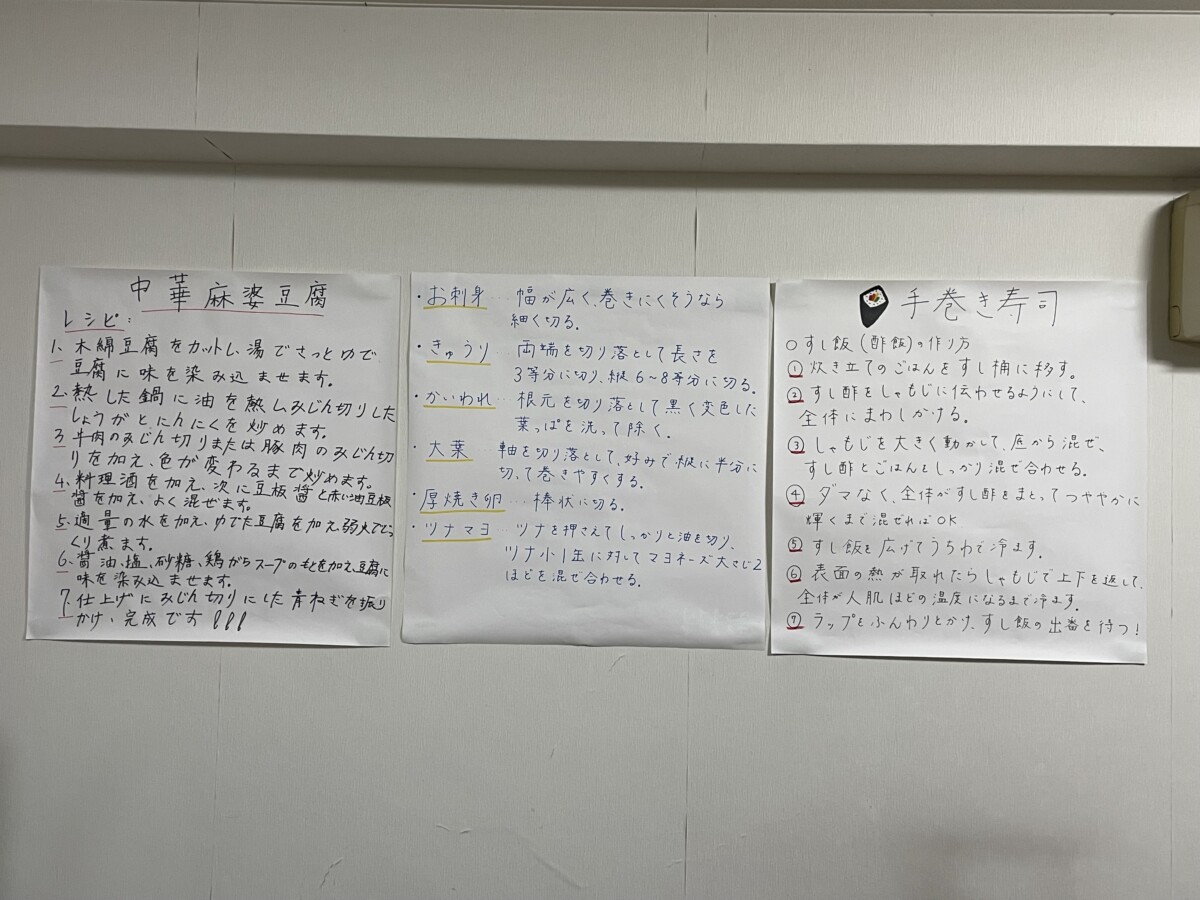 中華麻婆豆腐
レシピ:
1. 木綿豆腐をカットし、湯でさっとゆで
豆腐に味を染み込ませます。
2. 熱した鍋に油を熱しみじん切りした
しょうがとにんにくを炒めます。
3. 牛肉のみじん切りまたは豚肉のみじん切
りを加え、色が変わるまで炒めます。
4. 料理酒を加え、次に豆板醤と赤い油豆板
醤を加え、よく混ぜます。
5. 適量の水を加え、ゆでた豆腐を加え、弱火でじっ
くり煮ます。
6. 醤油、塩、砂糖、鶏がらスープのもとを加え、豆腐に
味を染み込ませます。
7. 仕上げにみじん切りにした青ねぎを振り
かけ、完成です!!!
・お刺身… 幅が広く、巻きにくそうなら
細く切る。
・きゅうり… 両端を切り落として長さを
3等分に切り、縦6~8等分に切る。
・かいわれ… 根元を切り落として黒く変色した
葉っぱを洗って除く。
・大葉… 軸を切り落として、好みで縦に半分に
切って巻きやすくする。
・厚焼き卵… 棒状に切る。
・ツナマヨ… ツナを押さえてしっかりと油を切り、
ツナ小1缶に対してマヨネーズ大さじ2
ほどを混ぜ合わせる。
手巻き寿司
○すし飯(酢飯)の作り方
① 炊き立てのごはんをすし桶に移す。
② すし酢をしゃもじに伝わせるようにして、
全体にまわしかける。
③ しゃもじを大きく動かして、底から混ぜ、
すし酢とごはんとしっかり混ぜ合わせる。
④ ダマなく、全体がすし酢をまとってつややかに
輝くまで混ぜればOK
⑤ すし飯を広げてうちわで冷ます。
⑥ 表面の熱が取れたらしゃもじで上下を返して、
全体が人肌ほどの温度になるまで冷ます。
⑦ ラップをふんわりとかけ、すし飯の出番を待つ!